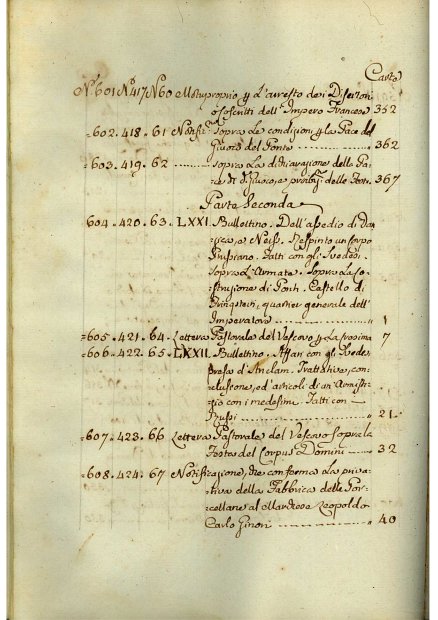 Carte
N° 601 N° 417 N° 60 Motuproprio p l'arresto dei Disertori
o Coscritti dell'Impero Francese 352
=602. 418. 61 Notific. Sopra le condizioni p la Pace del
Giuoco del Ponte 362
=603. 419. 62 Sopra la dichiarazione della Pa-
ce di Giuoco, e proibiz. delle 367
Parte Seconda
604. 420. 63. LXXI. Bullettino. Dell'assedio di Dan-
zica, e Neiss. Respinto un corpo
Prussiano. Fatti con gli Svedesi.
Sopra l'Armata. Sopra la Co-
struzione di Ponti. Castello di
quartier generale dell'
Imperatore 1
=605. 421. 64. Lettera Pastorale del Vescovo p la 7
=606. 422. 65. LXXII. Bullettino. Affari con gli Svede-
Presa d'Anclam. Trattative, con-
clusione, ed articoli di un Armisti-
zio con i medesimi. Fatti con
Russi " 21
=607. 423. 66 Lettera Pastorale del Vescovo sopra la
Festa del Corpus Domini " 32
=608. 424. 67 Notificazione, che conferma la priva-
tiva della Fabbrica delle Por-
cellane al Marchese Leopoldo
Carlo Ginori " 40